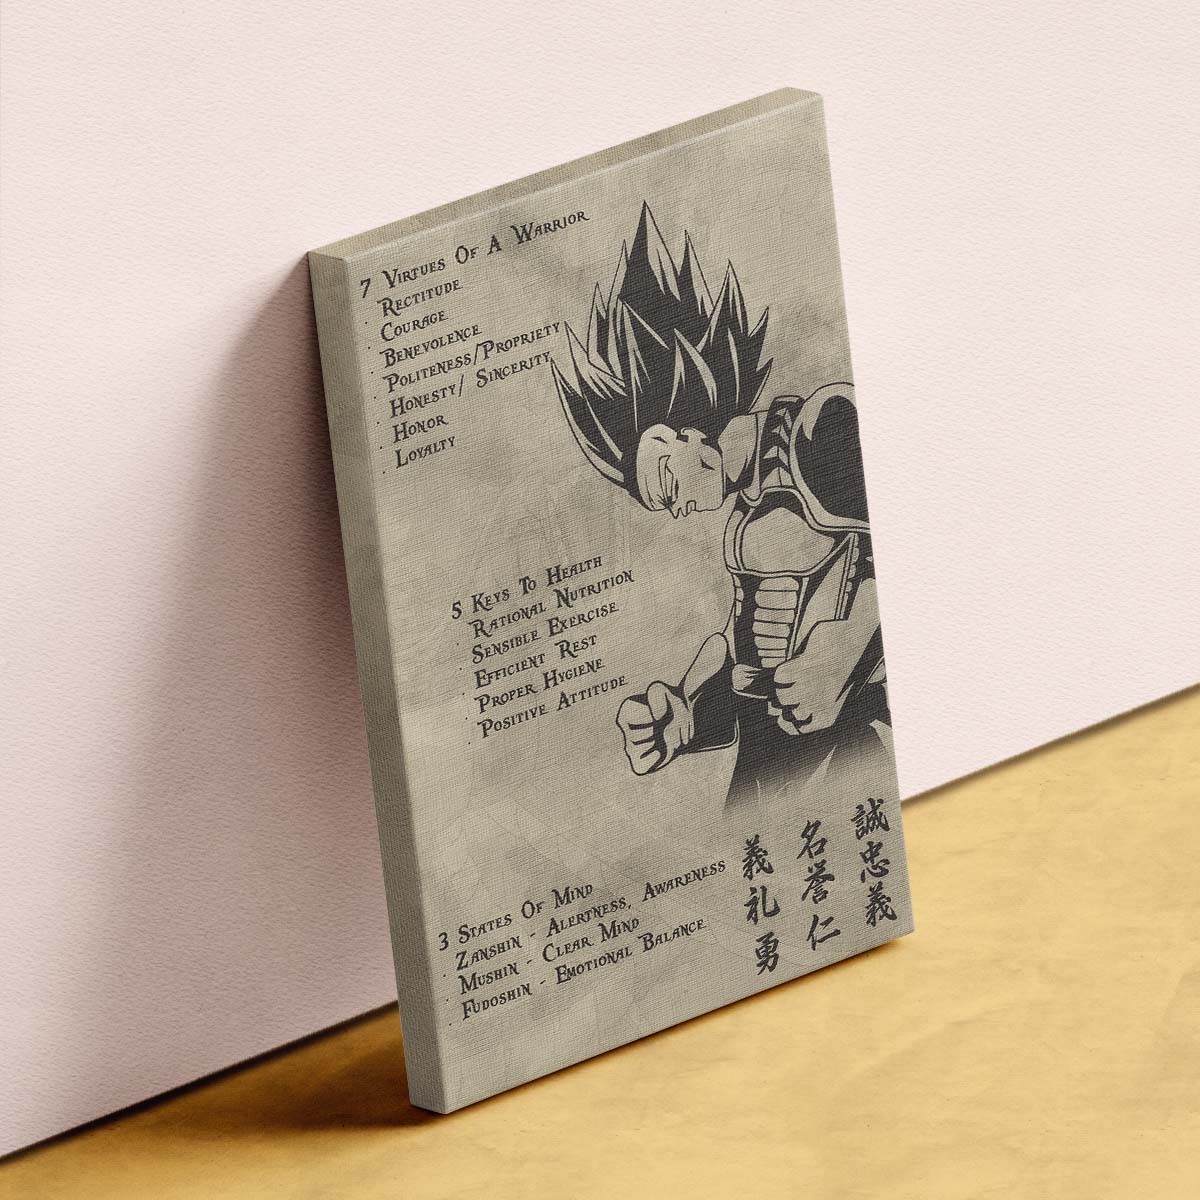 7 Virtues Of A Warrior
· Rectitude
· Courage
· Benevolence
· Politeness/Propriety
· Honesty/ Sincerity
· Honor
· Loyalty
5 Keys To Health
· Rational Nutrition
· Sensible Exercise
· Efficient Rest
· Proper Hygiene
· Positive Attitude
3 States Of Mind
· Zanshin - Alertness, Awareness
· Mushin - Clear Mind
· Fudoshin - Emotional Balance
誠忠義
名誉仁
義礼勇